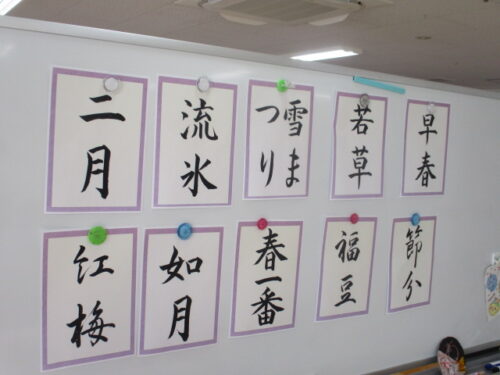 早春
若草
雪ま
つり
流氷
二月
節分
福豆
春一番
如月
紅梅